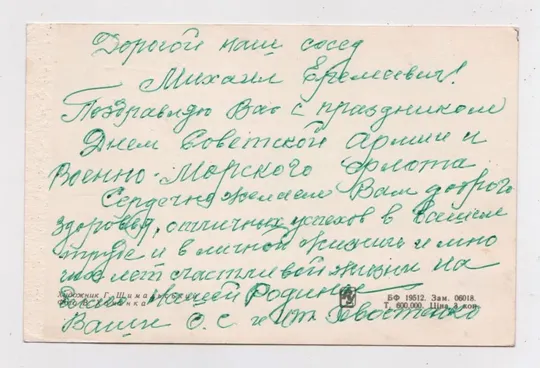 Дорогой наш сосед
Михаил Еремеевич!
Поздравляю Вас с праздником
Днем Советской Армии и
Военно-Морского Флота
Сердечно желаем Вам доброго
здоровья, отличных успехов в Вашем
труде и в личной жизни и мно
гих лет счастливой жизни на
нашей Родине
Ваши О. С и
Художник Г. Шима
БФ 19512. Зам. 06018.
Т. 600.000. Ціна 3 коп.